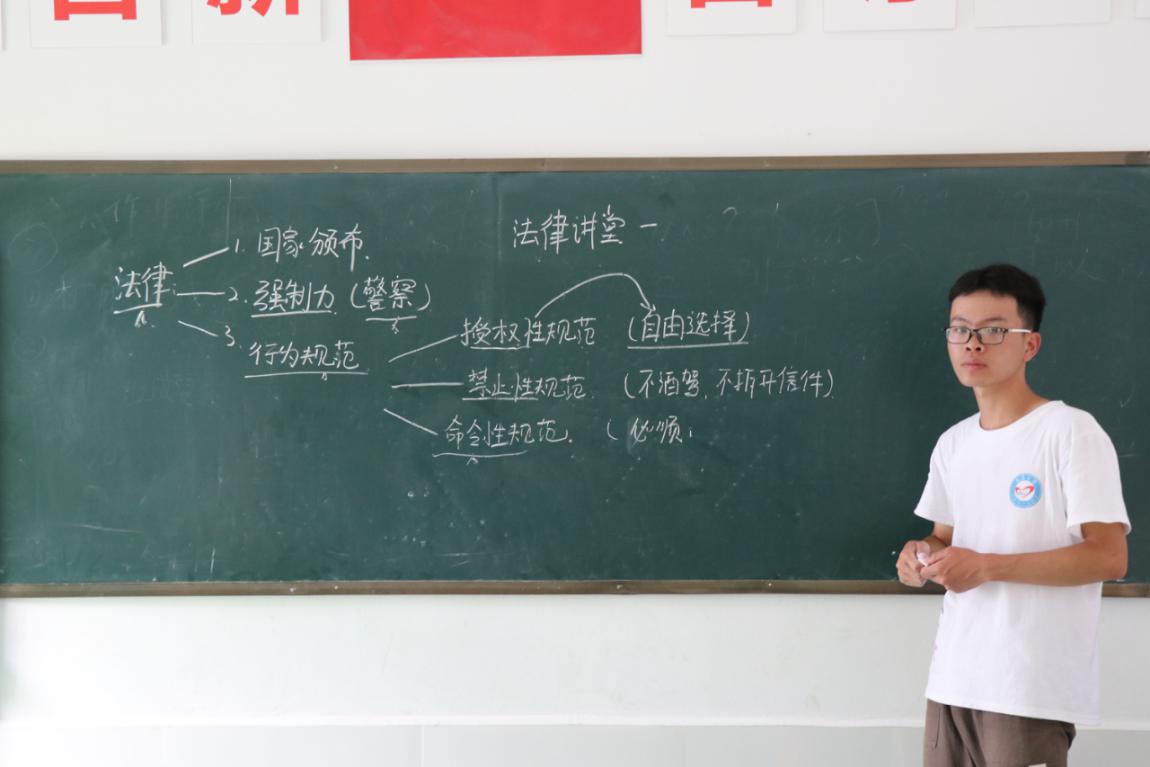 新
法律讲堂一
法律
1. 国家颁布.
2. 强制力 (警察)
3. 行为规范
授权性规范 (自由选择)
禁止性规范 (不酒驾、不拆开信件)
命令性规范. (必须;